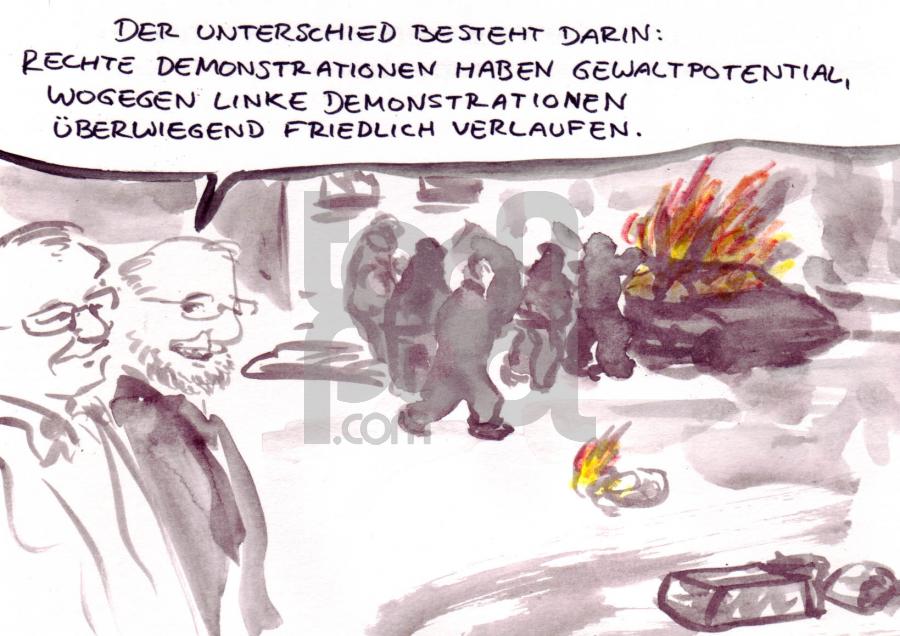 DER UNTERSCHIED BESTEHT DARIN:
RECHTE DEMONSTRATIONEN HABEN GEWALTPOTENTIAL,
WOGEGEN LINKE DEMONSTRATIONEN
ÜBERWIEGEND FRIEDLICH VERLAUFEN.
topa
.com